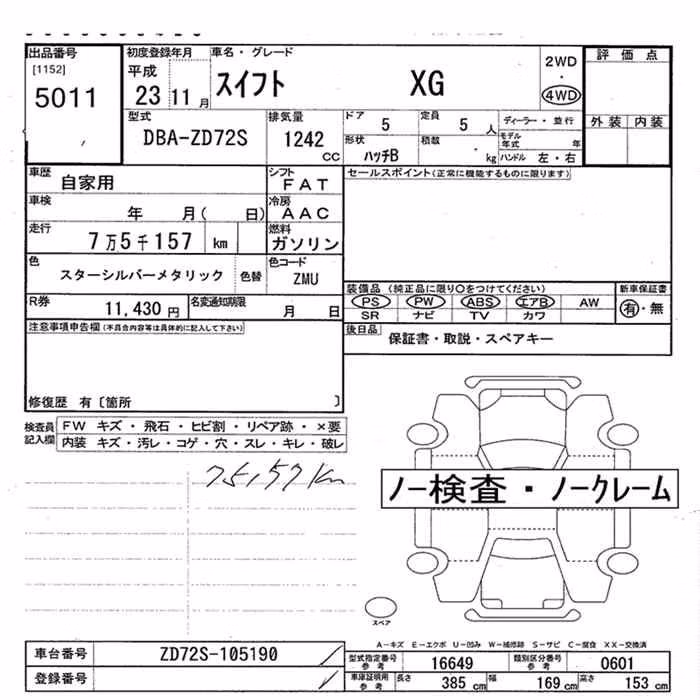 出品番号 初度登録年月 車名・グレード 評価点
[1152] 平成 スイフト XG 2WD
5011 23 11月 ・ 4WD
外装 内装
型式 排気量 ドア 定員 ディーラー・並行
DBA-ZD72S 1242 CC 5 5人
形状 積数 モデル年式 年
ハッチB kg ハンドル 左・右
車歴 自家用 シフト FAT セールスポイント(正常に機能するものに限ります)
車検 年 月( 日) 冷房 AAC
走行 7万5千157 km 燃料 ガソリン
色 スターシルバーメタリック 色替 色コード ZMU
装備品(純正品に限り○をつけてください) 新車保証書
R券 11,430円 名変通知期限 月 日 PS PW ABS エアB AW 有・無
SR ナビ TV カワ
注意事項申告欄(不具合内容等は具体的に記入して下さい)
後日品 保証書・取説・スペアキー
修復歴 有〔箇所 〕
検査員記入欄 FW キズ・飛石・ヒビ割・リペア跡・×要
内装 キズ・汚レ・コゲ・穴・スレ・キレ・破レ
75,157km
ノー検査・ノークレーム
スペア
A−キズ E−エクボ U−凹み W−補修跡 S−サビ C−腐食 XX−交換済
車台番号 ZD72S-105190
型式指定番号参考 16649 類別区分番号参考 0601
登録番号
車庫証明用参考 長さ 385cm 幅 169cm 高さ 153cm